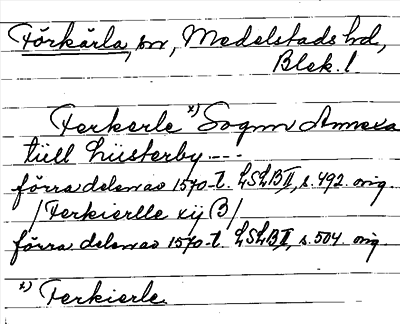 Förkärla, sn, Medelstads hd,
Blek. l.
Ferkerle x) Sognn Annexa
tüll Lüsterby ---
förra delen av 1570-t. LSLB II, s. 492. orig.
/Ferkierlle xij B/
förra delen av 1570-t. LSLB II, s. 504. orig.
x) Ferkierle.